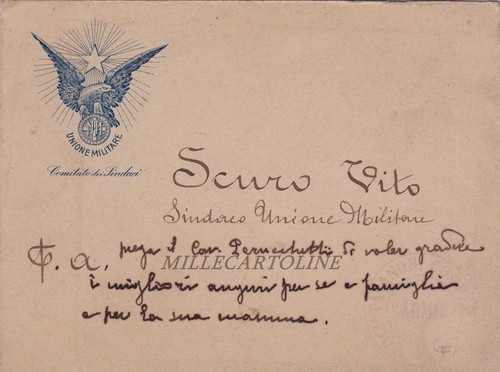 UNIONE MILITARE
Comitato dei Sindaci
Scuro Vito
Sindaco Unione Militare
prega il Cav. Perucchetti di voler gradire
MILLECARTOLINE
i migliori auguri per se e famiglia
e per la sua mamma.